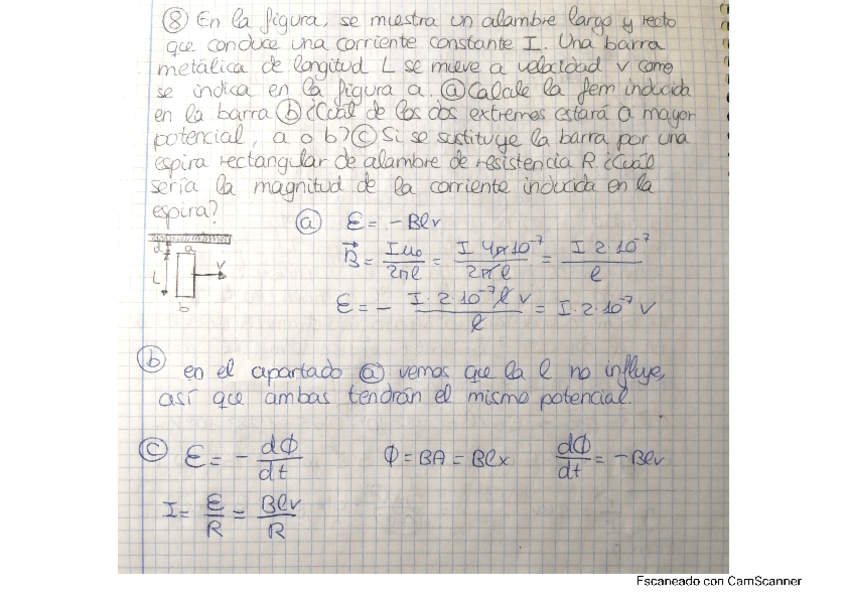 ⑧ En la figura, se muestra un alambre largo y recto
que conduce una corriente constante I. Una barra
metálica de longitud L se mueve a velocidad v como
se indica en la figura a. ⓐ Calcule la fem inducida
en la barra ⓑ ¿Cuál de los dos extremos estará a mayor
potencial, a o b? ⓒ Si se sustituye la barra por una
espira rectangular de alambre de resistencia R ¿Cuál
sería la magnitud de la corriente inducida en la
espira?
ⓐ ε = -Blv
B⃗ = Iμ₀/2πl = I 4π10⁻⁷/2πl = I 2·10⁻⁷/l
ε = - I·2·10⁻⁷ l v/l = I·2·10⁻⁷ v
d a
L v
b
ⓑ en el apartado ⓐ vemos que la l no influye,
así que ambas tendrán el mismo potencial.
ⓒ ε = - dϕ/dt ϕ = BA = Blx dϕ/dt = -Blv
I = ε/R = Blv/R
Escaneado con CamScanner